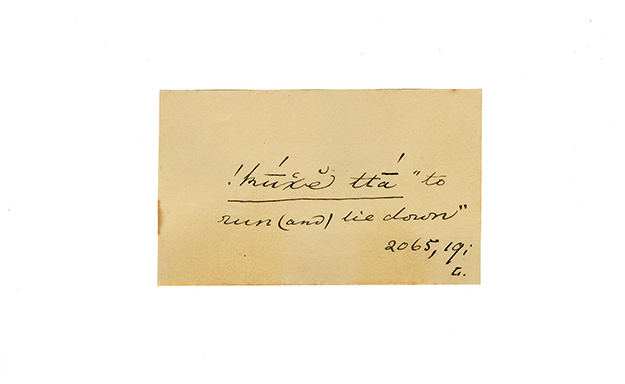 !kū́x̆ĕ ttā́ "to
run (and) lie down"
2065, 19;
L.